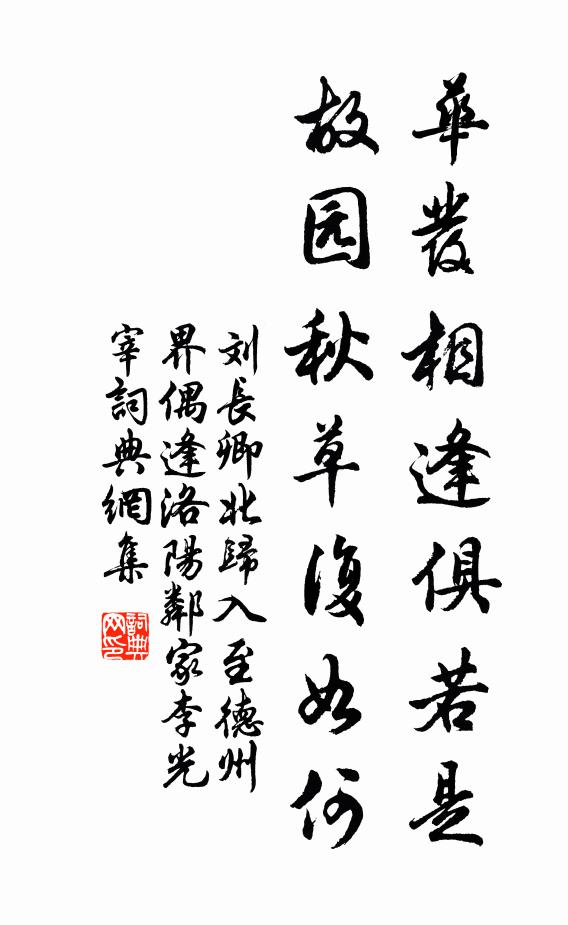 華發相逢俱若是
故园秋草復如何
刘長卿北歸入至德州
界偶逢洛陽鄰家李光
宰詞典網集
詞典
网印